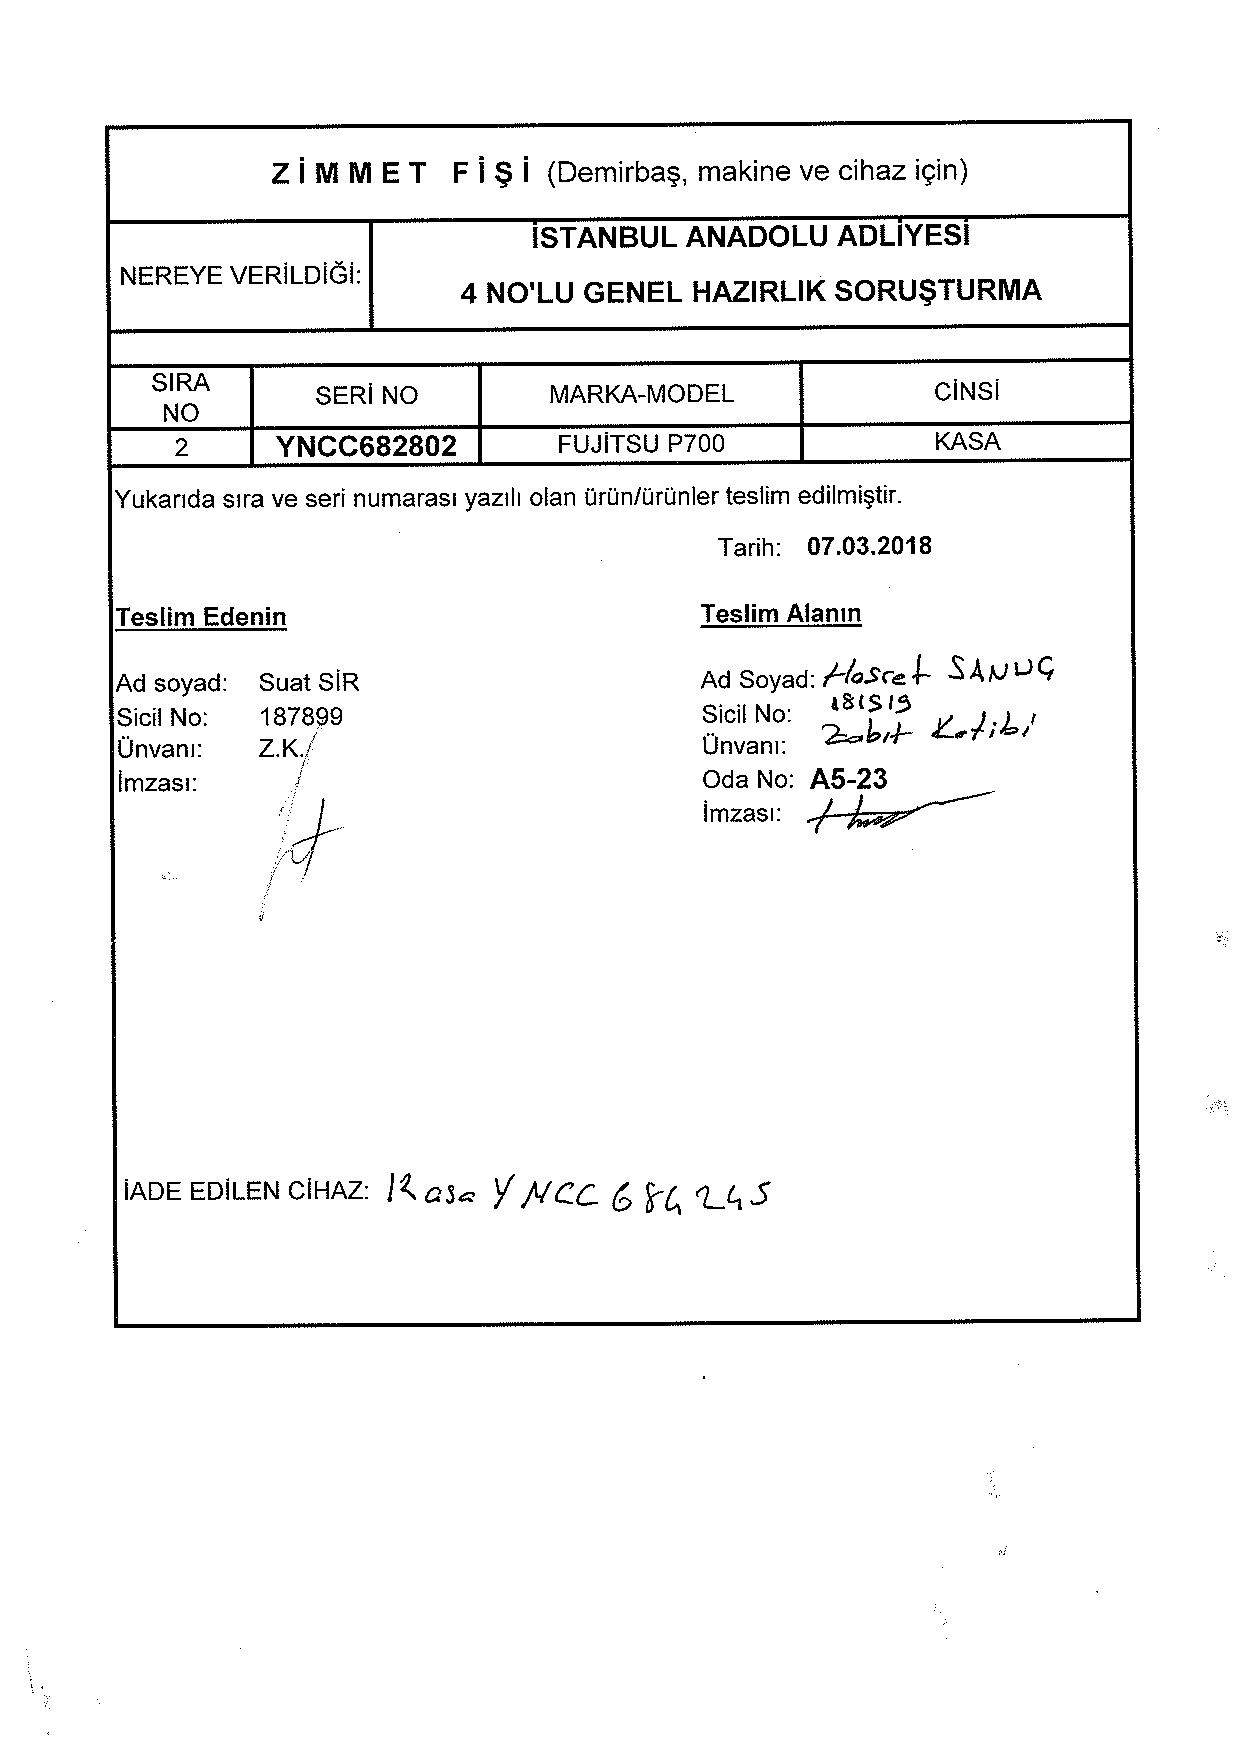 ZİMMET FİŞİ (Demirbaş, makine ve cihaz için)
NEREYE VERİLDİĞİ:
İSTANBUL ANADOLU ADLİYESİ
4 NO'LU GENEL HAZIRLIK SORUŞTURMA
SIRA NO SERİ NO MARKA-MODEL CİNSİ
2 YNCC682802 FUJİTSU P700 KASA
Yukarıda sıra ve seri numarası yazılı olan ürün/ürünler teslim edilmiştir.
Tarih: 07.03.2018
Teslim Edenin
Ad soyad: Suat SİR
Sicil No: 187899
Ünvanı: Z.K.
İmzası:
Teslim Alanın
Ad Soyad: Hasret SANUÇ
Sicil No: 181519
Ünvanı: Zabıt Katibi
Oda No: A5-23
İmzası:
İADE EDİLEN CİHAZ: Kasa YNCC684245